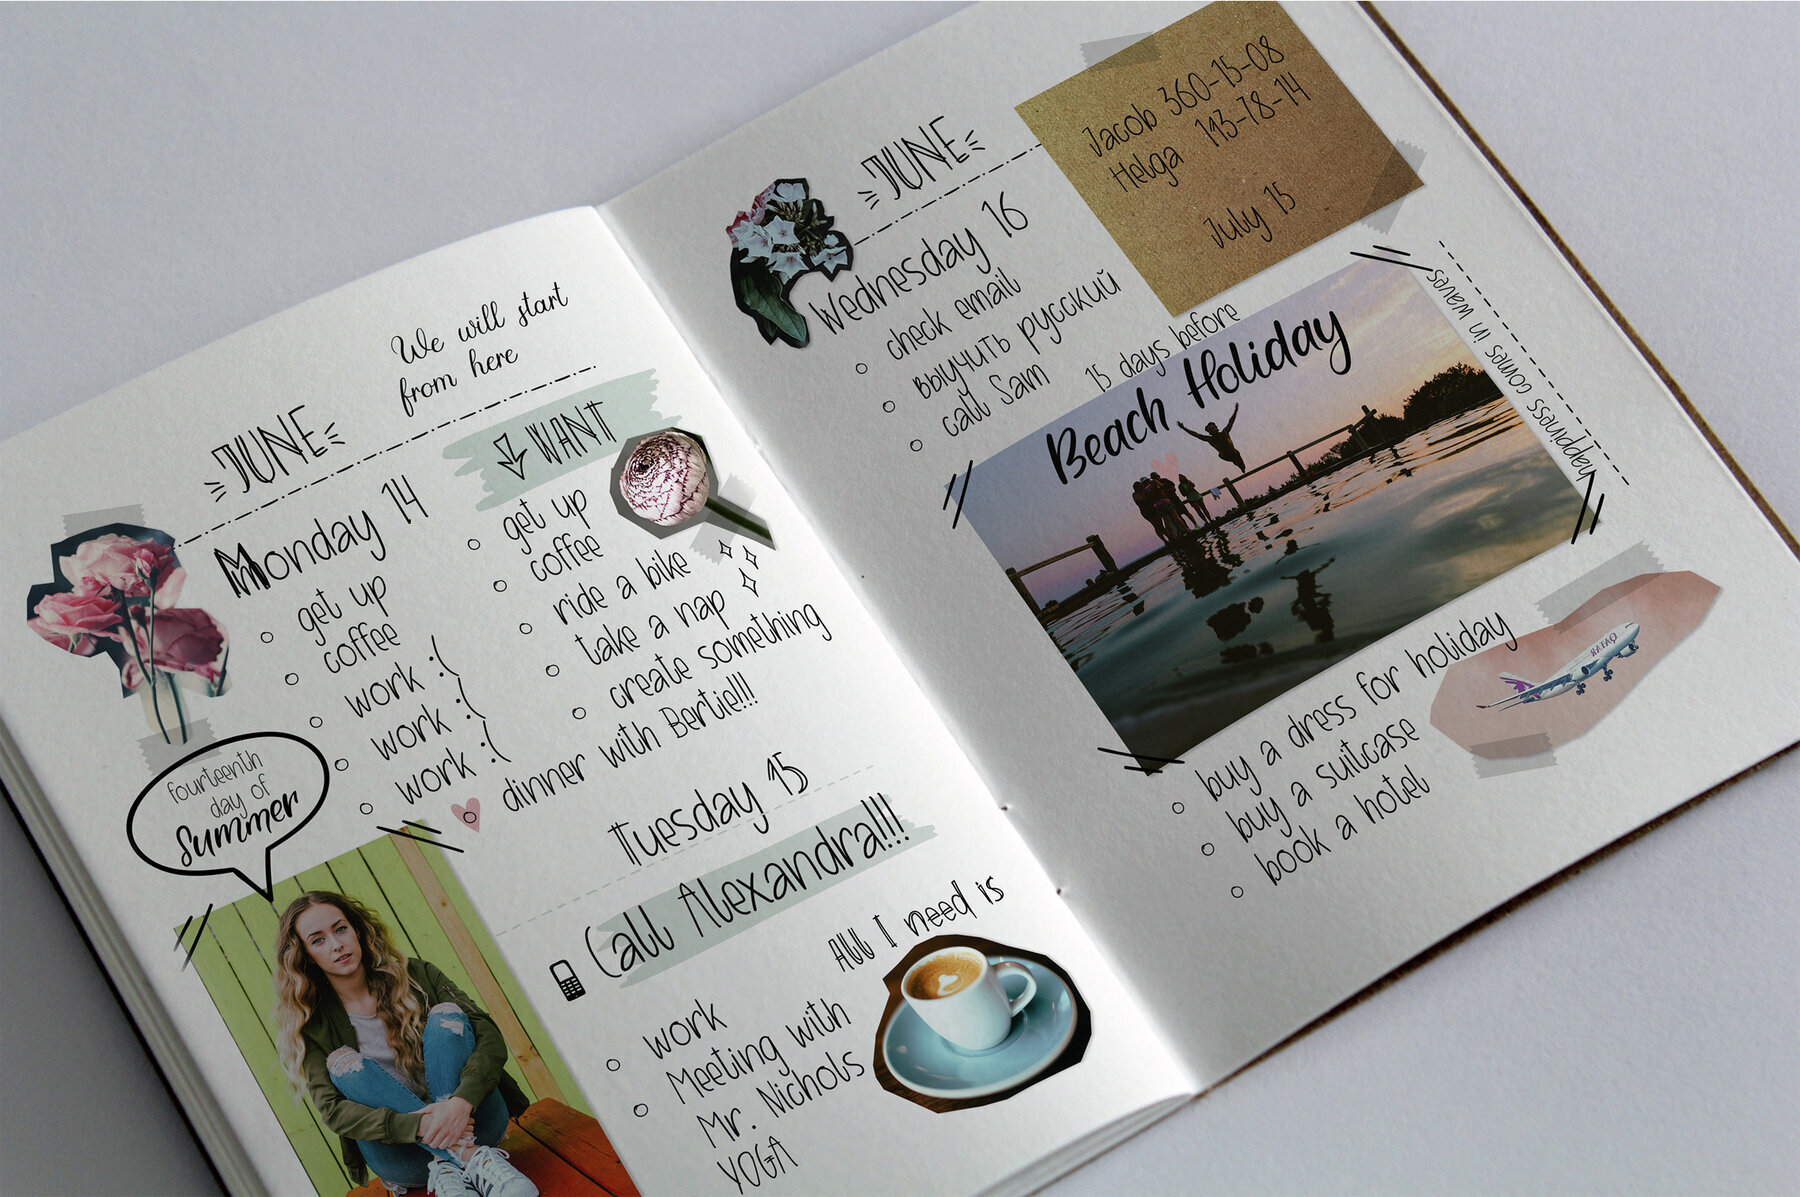 We will start
from here
JUNE
Monday 14
get up
coffee
work :(
work :(
work :(
WANT
get up
coffee
ride a bike
take a nap
create something
dinner with Bertie!!!
fourteenth
day of
Summer
Tuesday 15
Call Alexandra!!!
work
Meeting with
Mr. Nichols
YOGA
All I need is
JUNE
Wednesday 16
check email
выучить русский
call Sam
Jacob 360-15-08
Helga 113-78-14
July 15
15 days before
Beach Holiday
happiness comes in waves
buy a dress for holiday
buy a suitcase
book a hotel